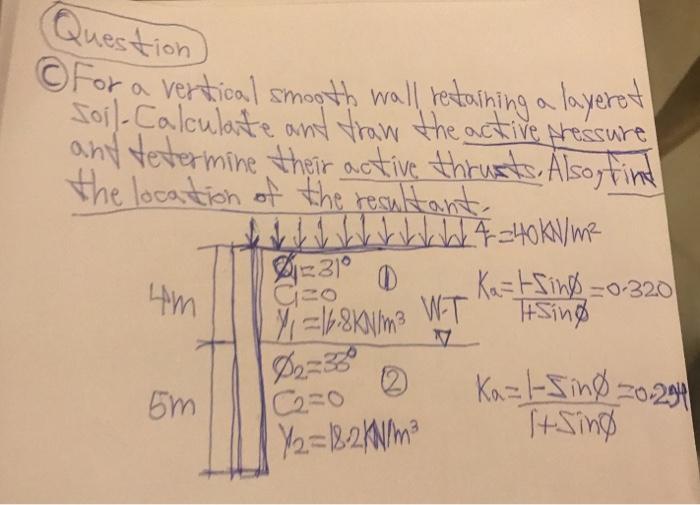 Question
Ⓒ For a vertical smooth wall retaining a layered
soil. Calculate and draw the active pressure
and determine their active thrusts. Also, find
the location of the resultant.
q = 40 KN/m²
Ø₁ = 31° ①
C₁ = 0
γ₁ = 16.8 KN/m³
4m
W.T
Ka = 1 - Sinø / 1 + Sinø = 0.320
Ø₂ = 33° ②
C₂ = 0
γ₂ = 18.2 KN/m³
5m
Ka = 1 - Sinø / 1 + Sinø = 0.294